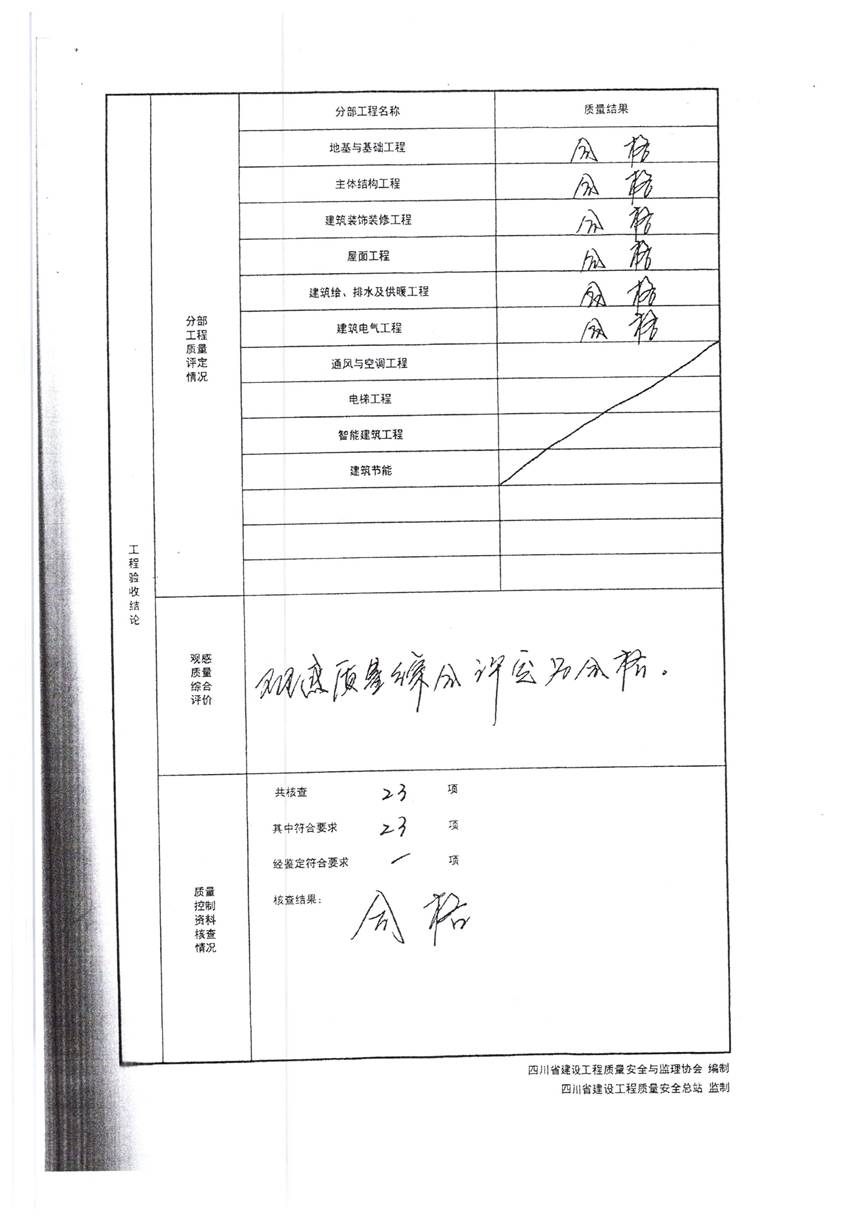 工程验收结论
分部
工程
质量
评定
情况
分部工程名称 质量结果
地基与基础工程 合格
主体结构工程 合格
建筑装饰装修工程 合格
屋面工程 合格
建筑给、排水及供暖工程 合格
建筑电气工程 合格
通风与空调工程
电梯工程
智能建筑工程
建筑节能
观感
质量
综合
评价
观感质量综合评定为合格。
质量
控制
资料
核查
情况
共核查 23 项
其中符合要求 23 项
经鉴定符合要求 一 项
核查结果：
合格
四川省建设工程质量安全与监理协会 编制
四川省建设工程质量安全总站 监制